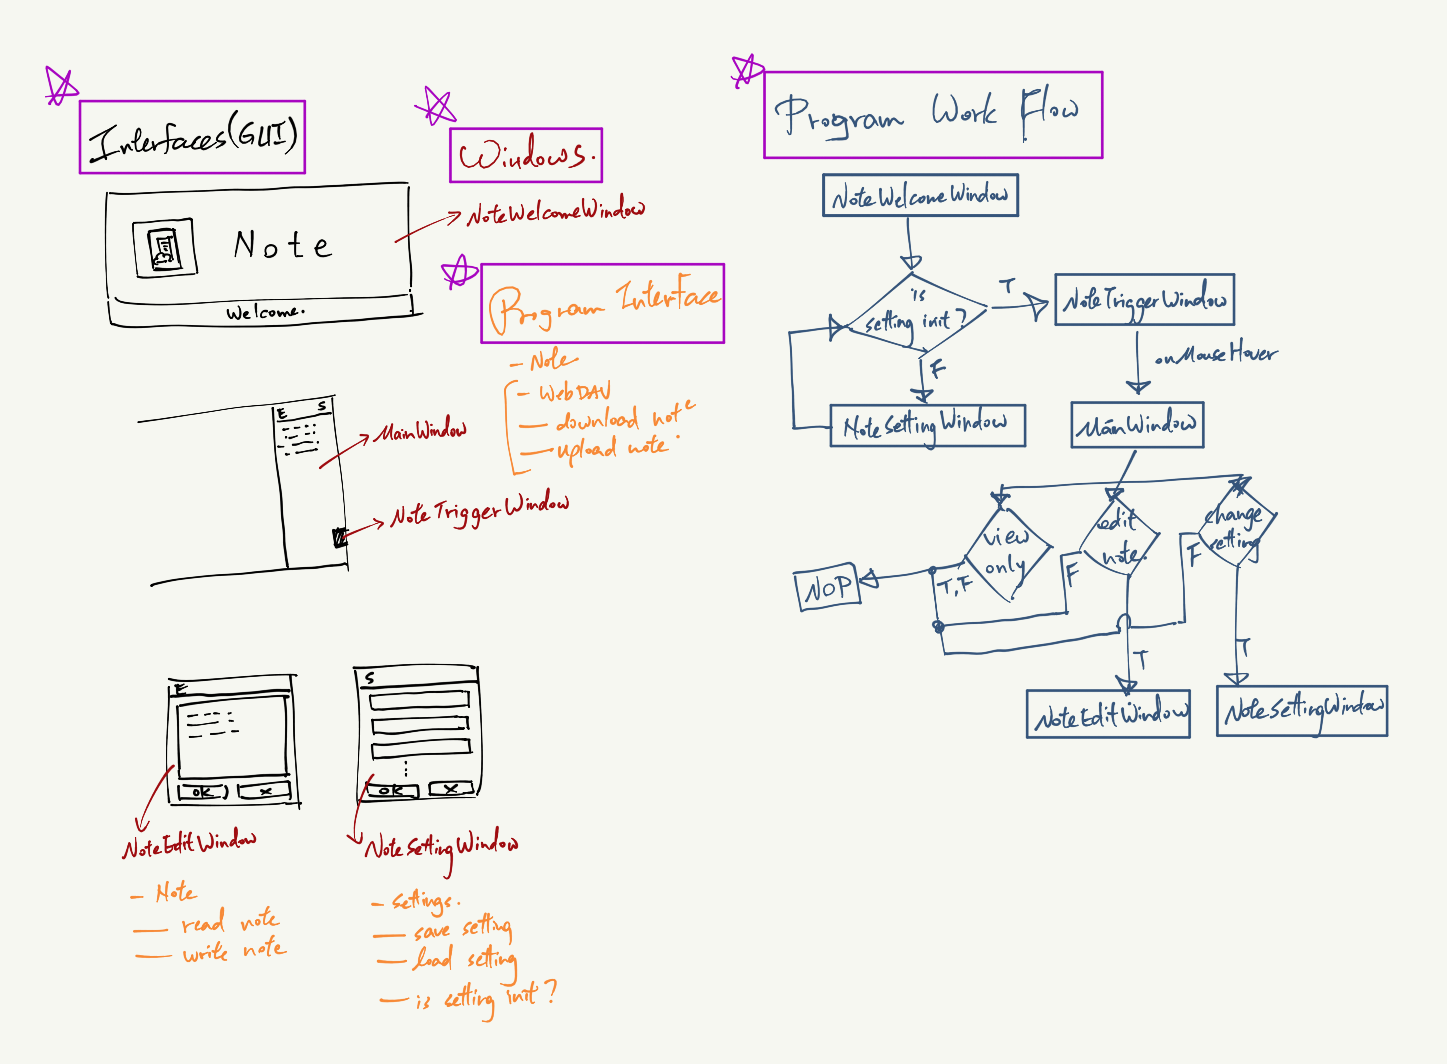 Interfaces(GUI)
Note
Welcome.
Windows.
NoteWelcomeWindow
Program Interface
- Note
- WebDAV
— download note
— upload note.
E S
MainWindow
NoteTriggerWindow
E
OK X
NoteEditWindow
- Note
— read note
— write note
S
OK X
NoteSettingWindow
- settings.
— save setting
— load setting
— is setting init?
Program Work Flow
NoteWelcomeWindow
is
setting init?
T
NoteTriggerWindow
F
onMouseHover
NoteSettingWindow
MainWindow
view
only
T,F
edit
note.
F
change
setting
F
NOP
T
T
NoteEditWindow
NoteSettingWindow